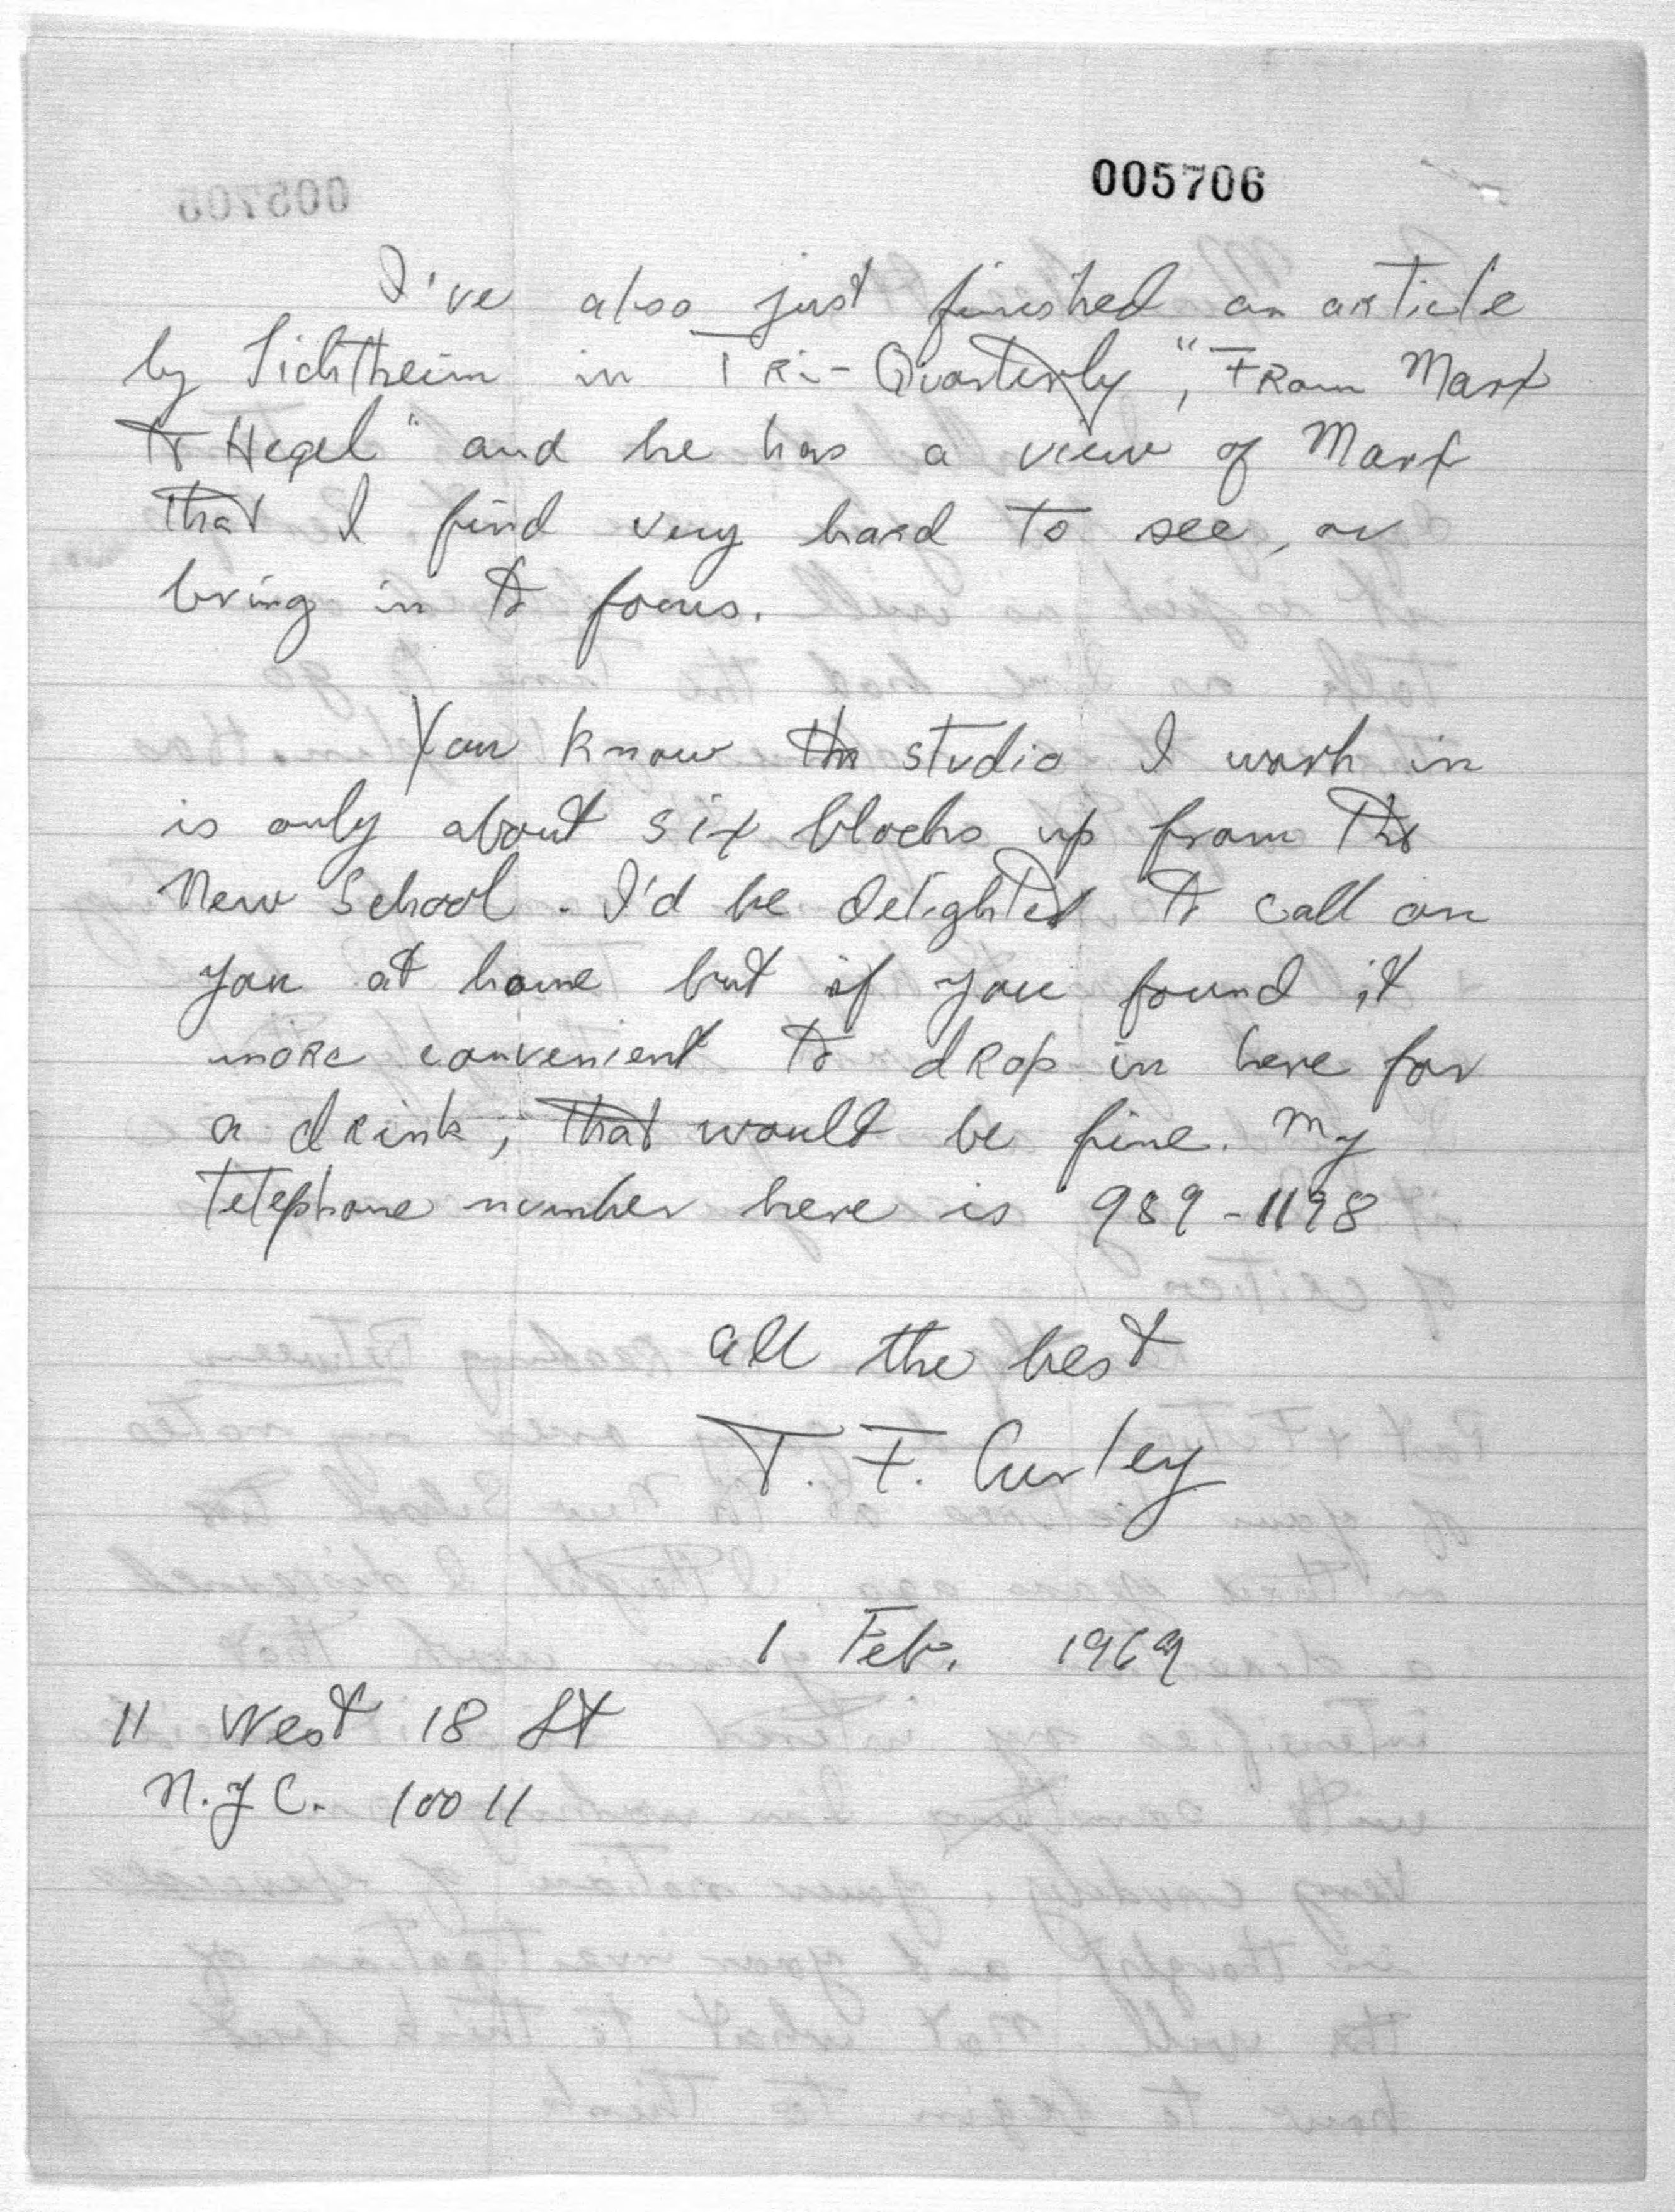 005706
I've also just finished an article
by Lichtheim in Tri-Quarterly, "From Marx
to Hegel" and he has a view of Marx
that I find very hard to see, or
bring in to focus.
You know the studio I work in
is only about six blocks up from the
New School. I'd be delighted to call on
you at home but if you found it
more convenient to drop in here for
a drink, that would be fine. My
telephone number here is 989-1198
all the best
T. F. Curley
1 Feb. 1969
11 West 18 St
N.Y C. 10011